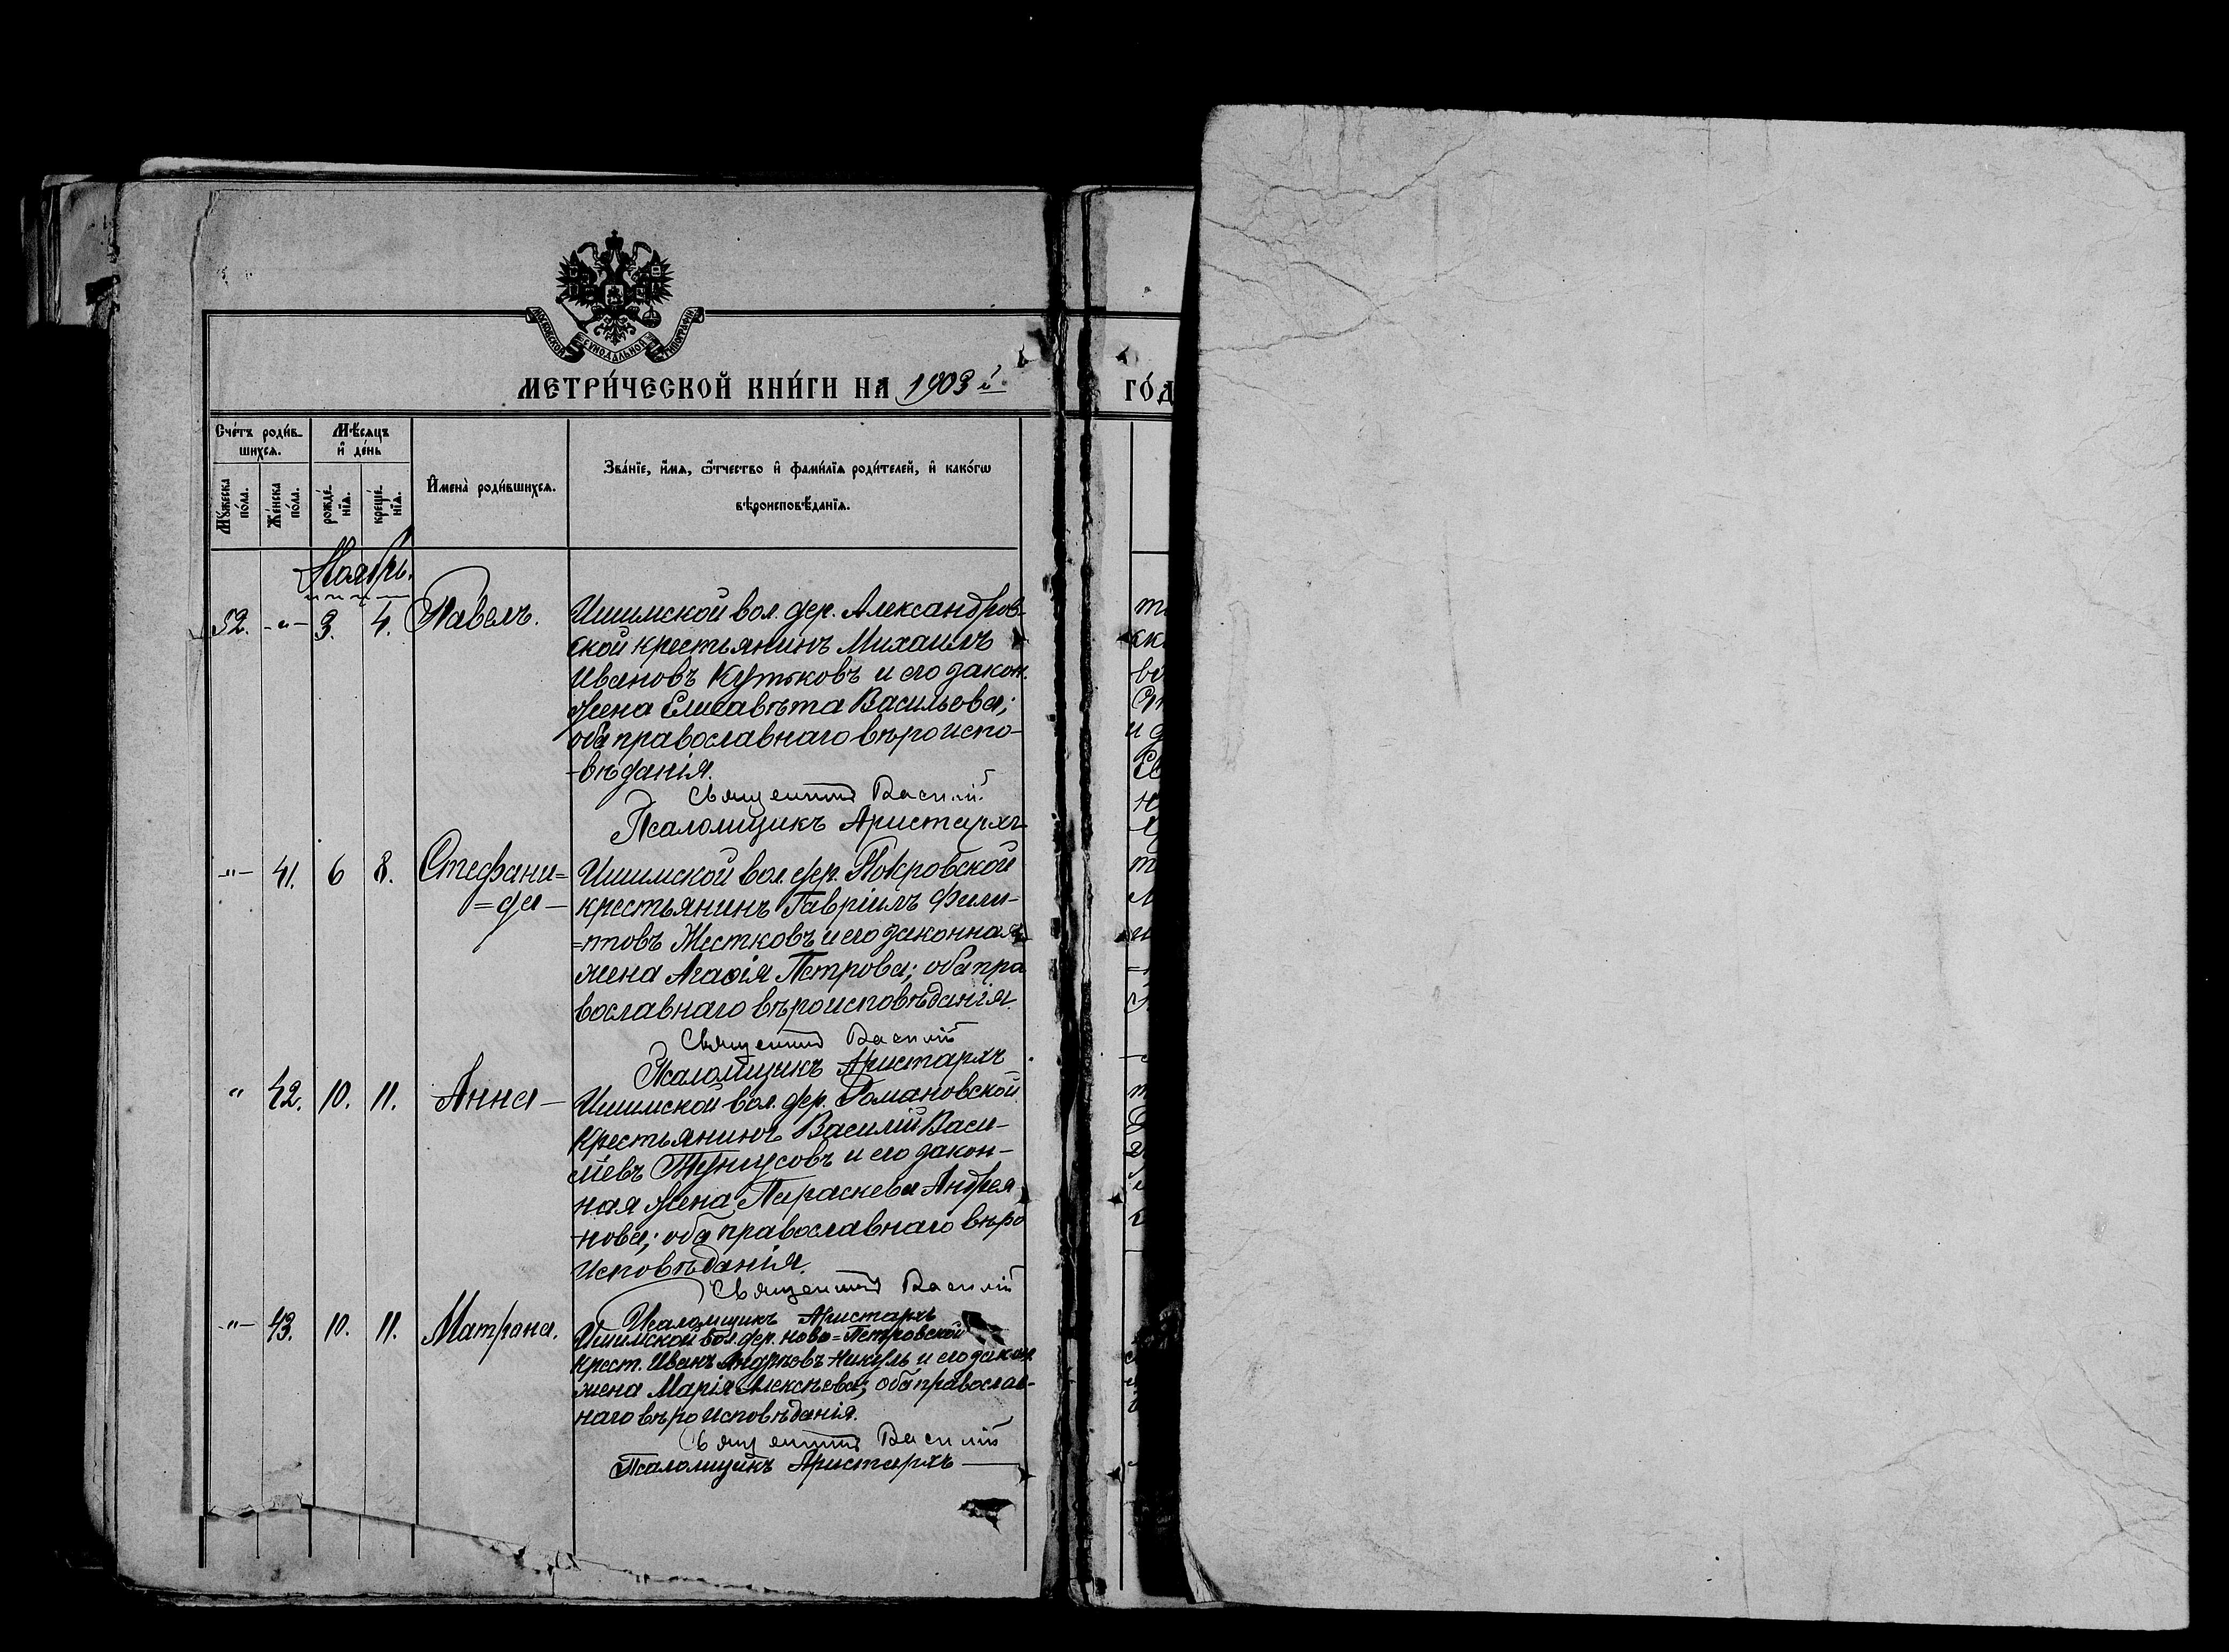 МОСКОВСКОЙ СѴНОДАЛЬНОЙ ТИПОГРАФІИ
МЕТРИ́ЧЕСКОЙ КНИ́ГИ НА 1903 й
ГО́Д
Сче́тъ роди́в-
шихсѧ.
Мѣ́сѧцъ
и҆ де́нь
И҆мена̀ роди́вшихсѧ.
Зва́нїе, и҆́мѧ, ѻ҆́тчество и҆ фами́лїѧ роди́телей, и҆ како́гѡ
вѣроисповѣ́данїѧ.
Мꙋ́жеска
по́ла.
Же́нска
по́ла.
рожде́-
нїѧ.
креще́-
нїѧ.
Ноябрь.
52. -"- 3. 4. Павелъ. Ишимской вол. дер. Александров-
ской крестьянинъ Михаилъ
Ивановъ Кутковъ и его закон.
жена Елисавѣта Васильева;
оба православнаго вѣроиспо-
-вѣданія.
Священникъ Василій
Псаломщикъ Аристархъ
-"- 41. 6 8. Стефани= Ишимской вол. дер. Покровской
=да- крестьянинъ Гавріилъ Фили-
=повъ Жестковъ и его законная
жена Агаѳія Петрова; оба пра
вославнаго вѣроисповѣданія.
Священникъ Василій
Псаломщикъ Аристархъ
" 42. 10. 11. Анна- Ишимской вол. дер. Романовской
крестьянинъ Василій Васи-
ліевъ и его закон-
ная жена Параскева Андрея
-нова; оба православнаго вѣро
исповѣданія.
Священникъ Василій
Псаломщикъ Аристархъ
-"- 43. 10. 11. Матрона. Ишимской вол. дер. Ново=Петровской
крест. Иванъ Андреевъ Никуль и его закон.
жена Марія Алексѣева; оба православ-
наго вѣроисповѣданія.
Священникъ Василій
Псаломщикъ Аристархъ